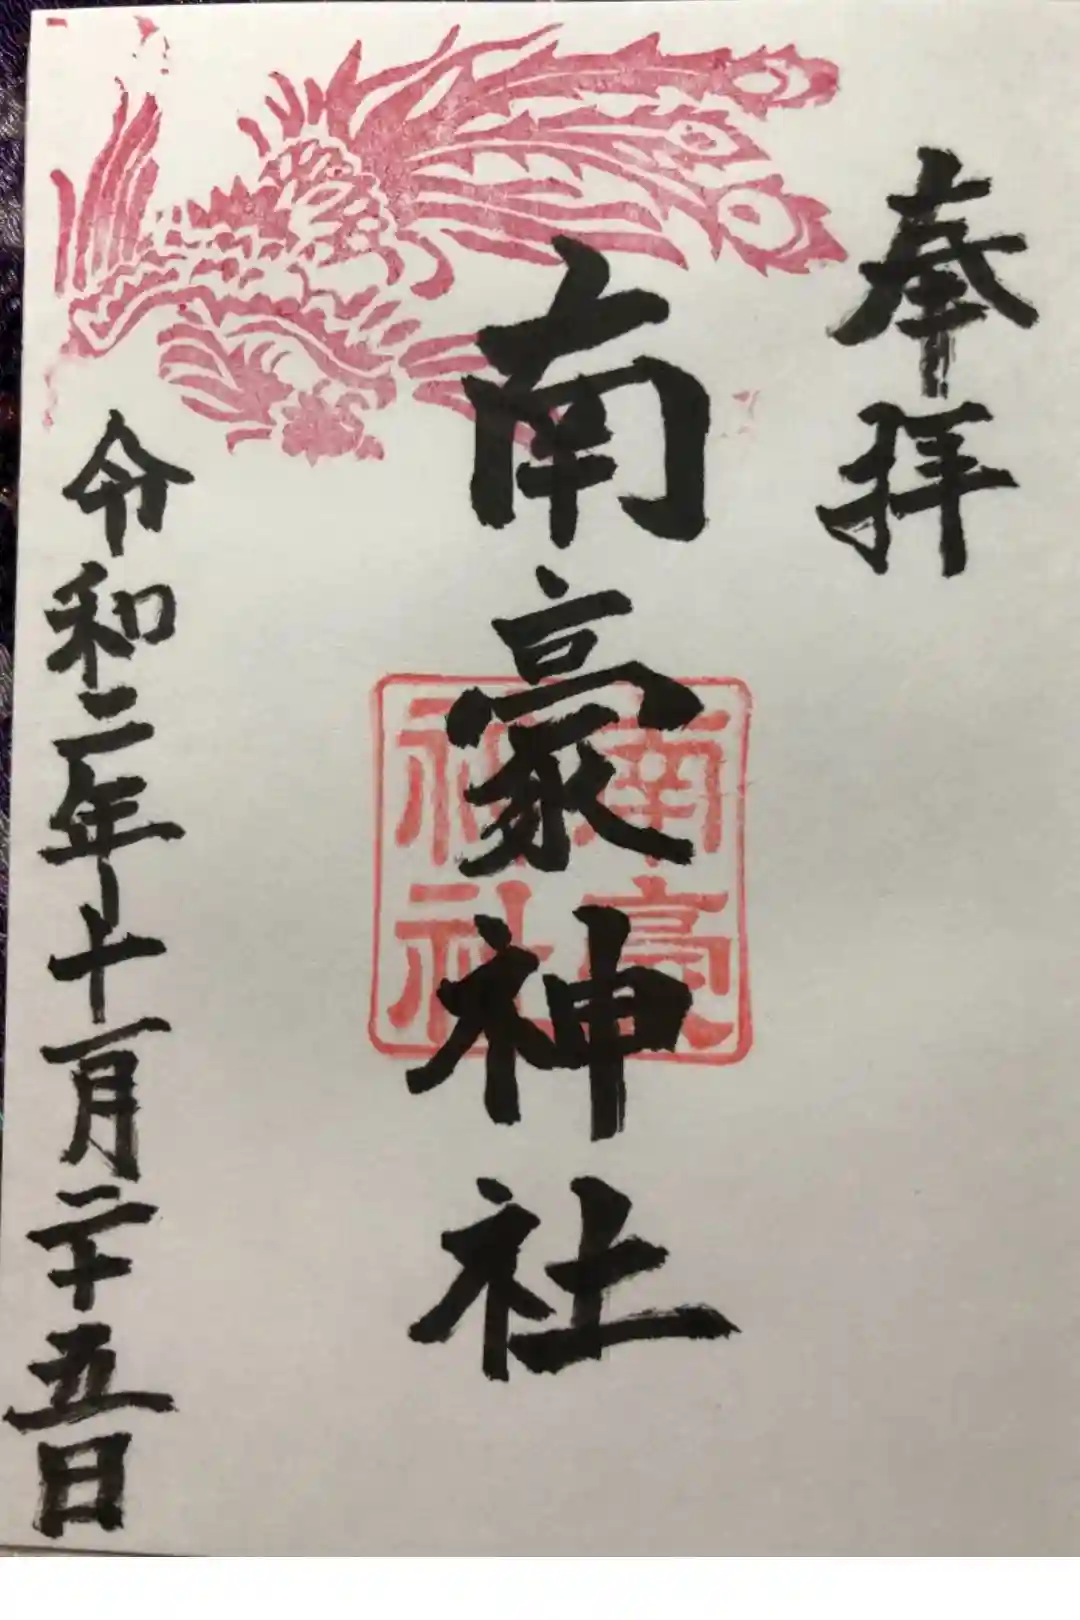 奉拝
南豪神社
南豪神社
令和二年十一月二十五日